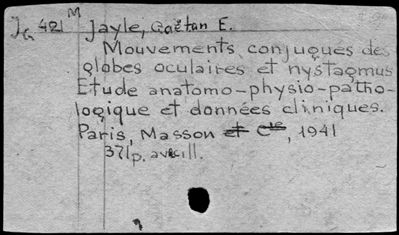 JG 421 M Jayle, Gaëtan E.
Mouvements conjugués des
globes oculaires et nystagmus
Etude anatomo-physio-patho-
logique et données cliniques.
Paris, Masson et Cie, 1941
371p. avec ill.